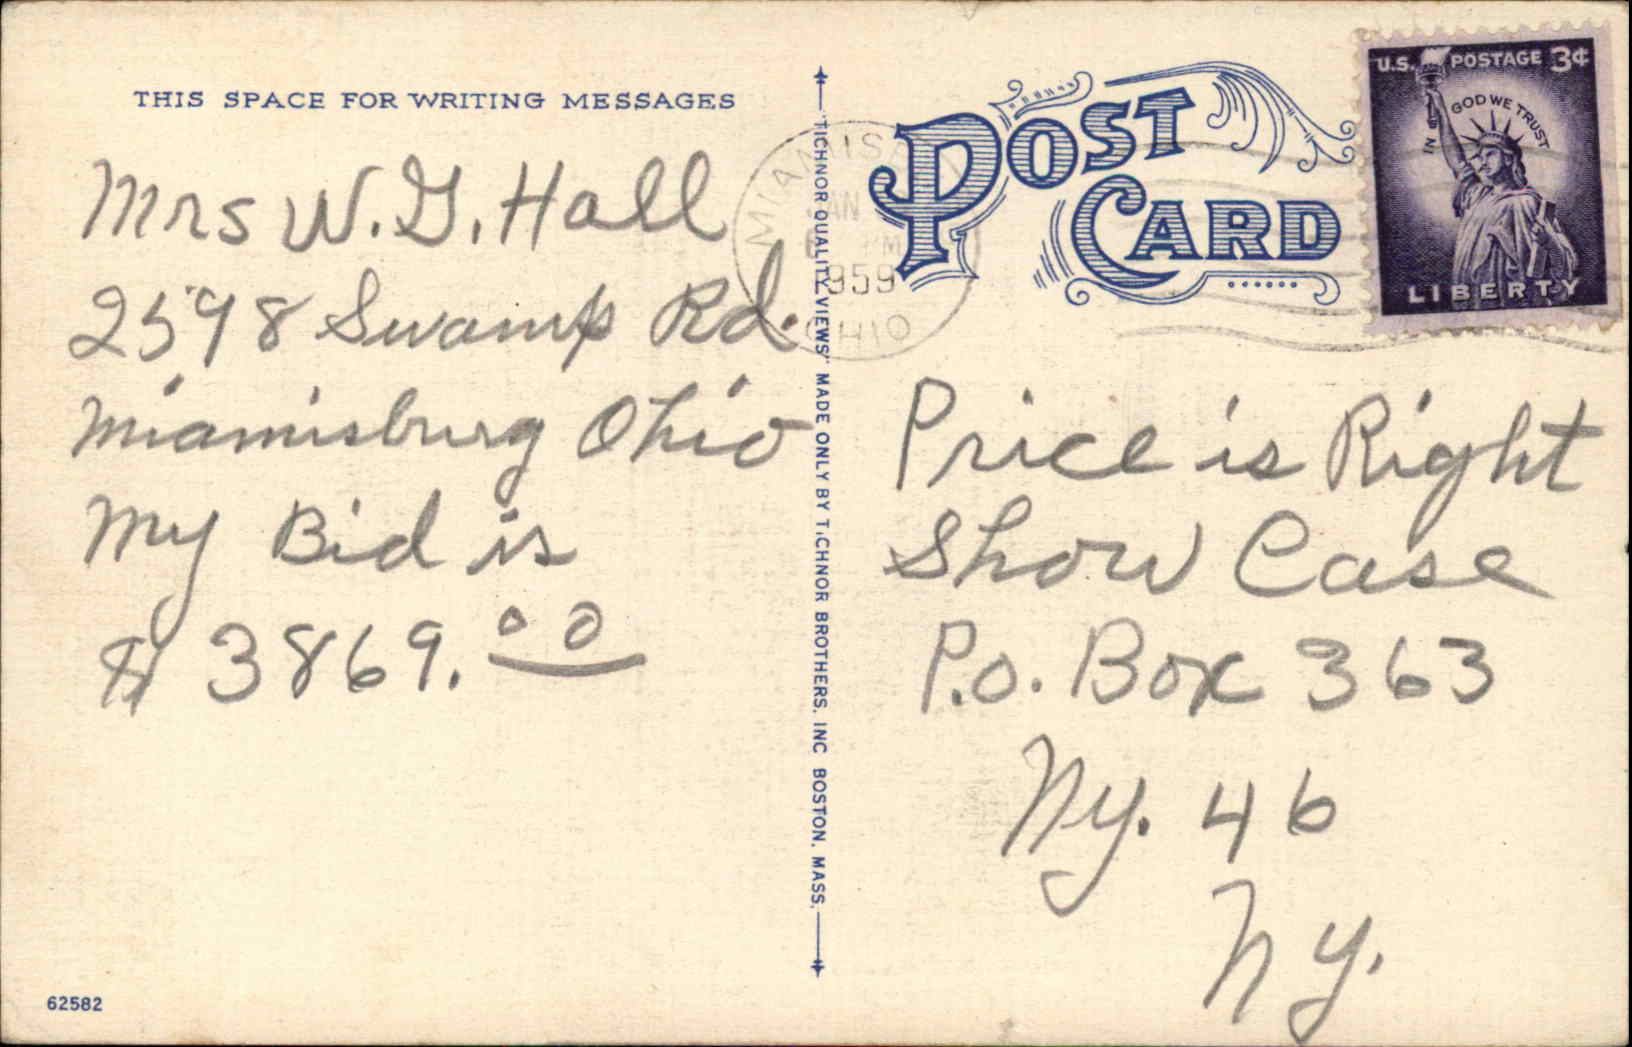 THIS SPACE FOR WRITING MESSAGES
Mrs W. G. Hall
2598 Swamp Rd.
Miamisburg Ohio
My Bid is
$ 3869.00
62582
"TICHNOR QUALITY VIEWS" MADE ONLY BY TICHNOR BROTHERS, INC BOSTON, MASS.
POST CARD
JAN
PM
1959
OHIO
U.S. POSTAGE 3¢
IN GOD WE TRUST
LIBERTY
Price is Right
Show Case
P.O. Box 363
Ny. 46
Ny.